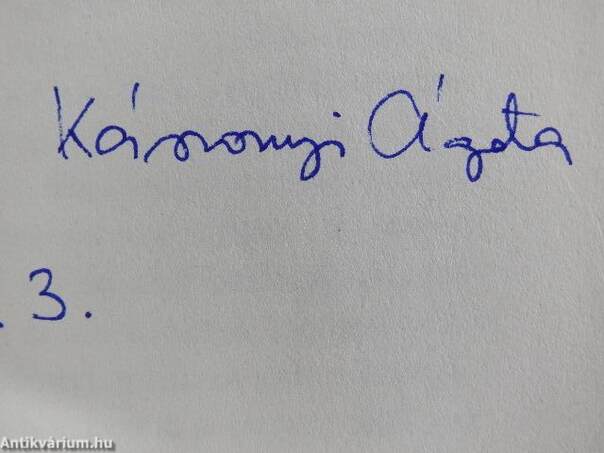 Kászonyi Ágota
. 3.
Antikvárium.hu